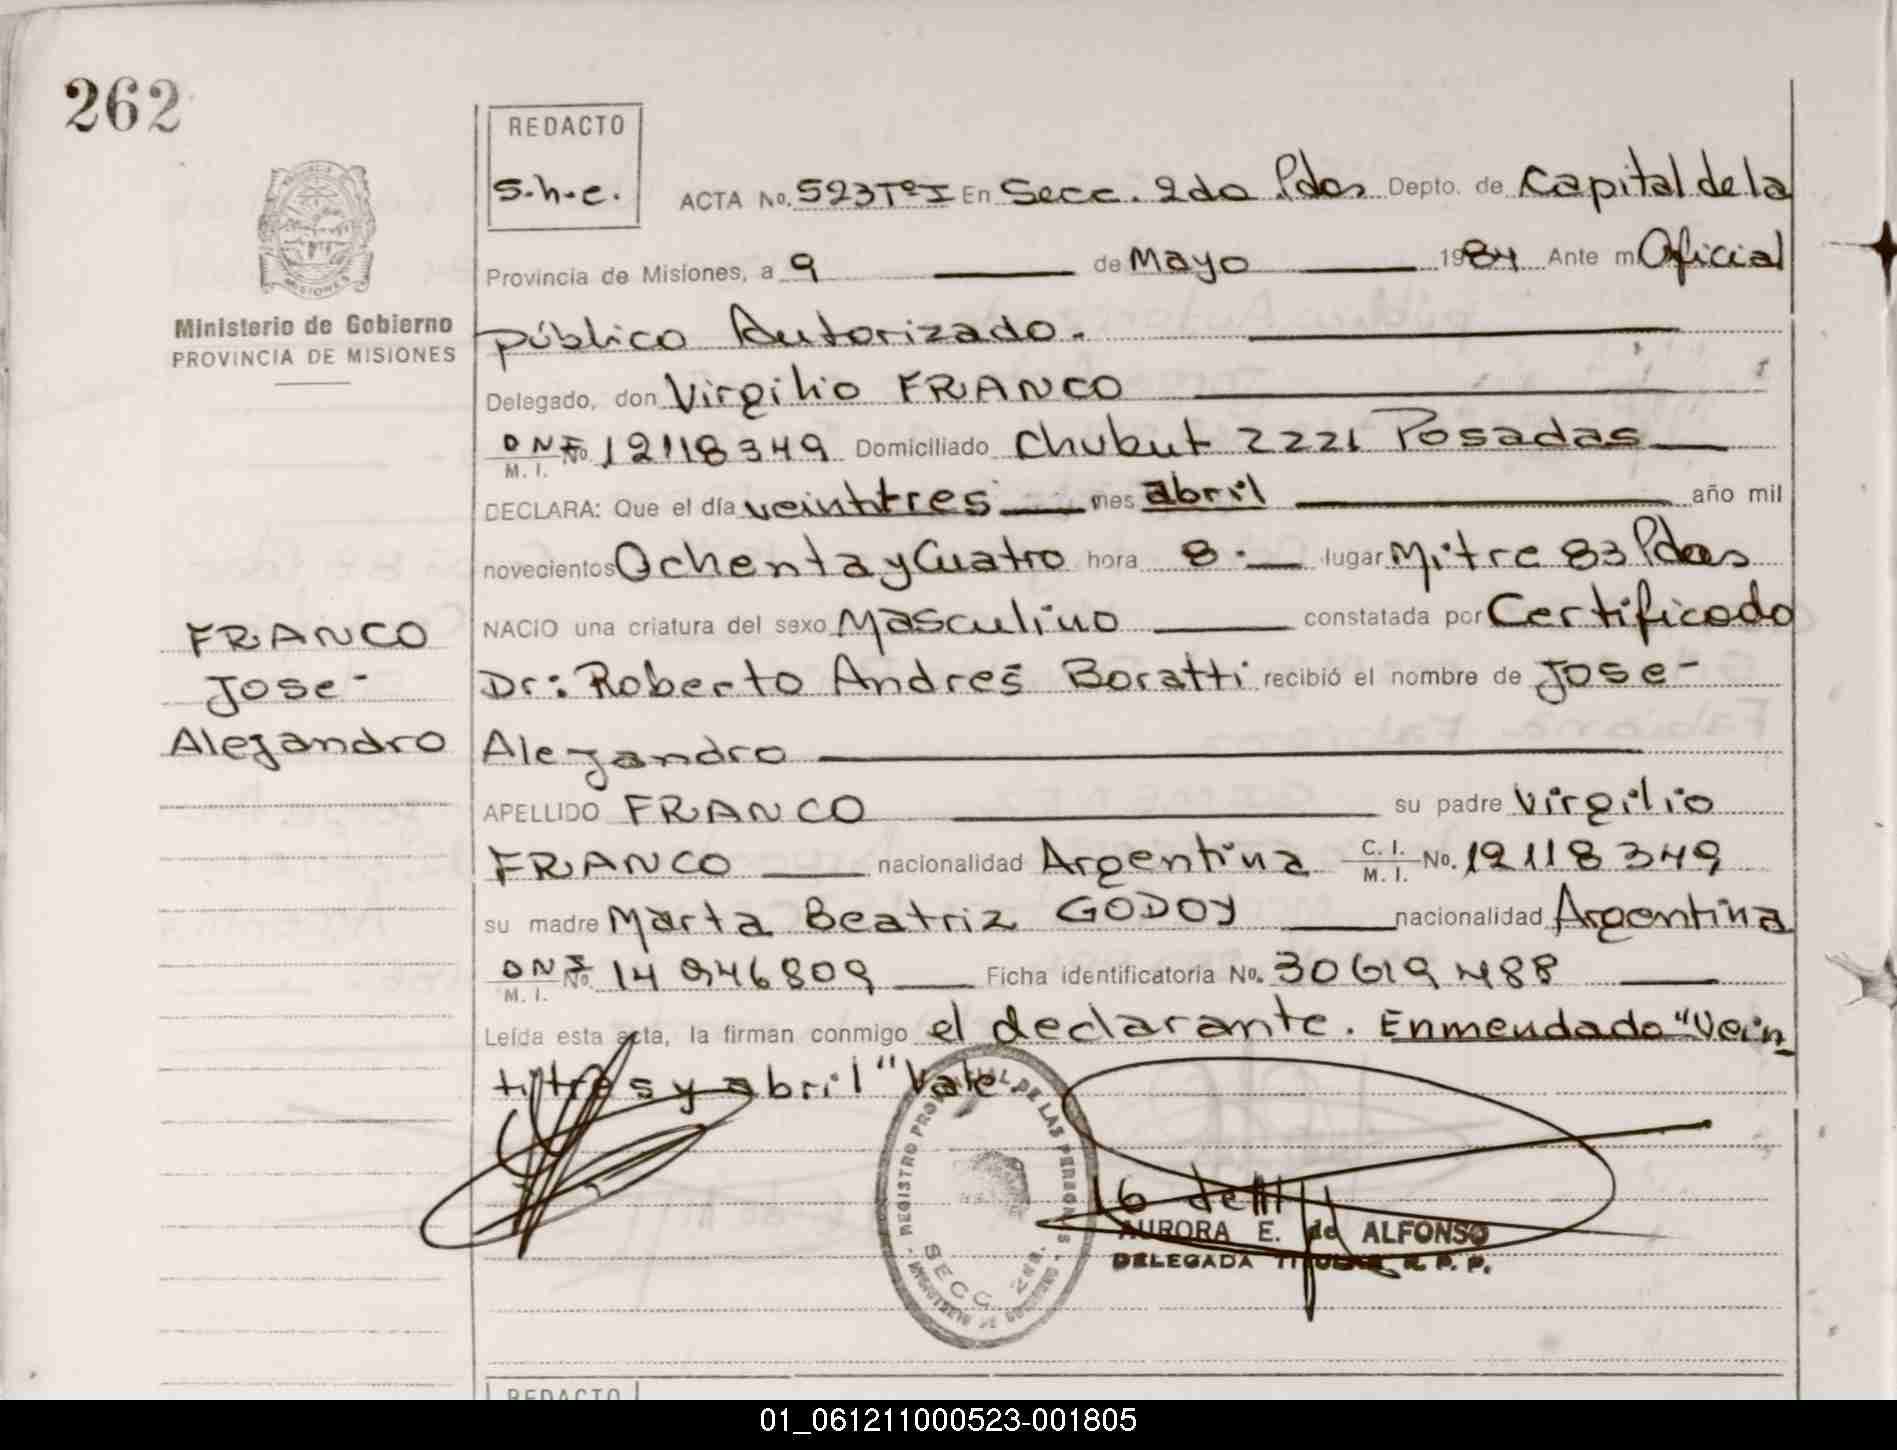 262
REDACTO
s.h.e.
ACTA No. 523 Tº I En Secc. 2do Pdas Depto. de Capital de la
Provincia de Misiones, a 9 de Mayo 1984 Ante mi Oficial
Ministerio de Gobierno
PROVINCIA DE MISIONES
público Autorizado.
Delegado, don Virgilio FRANCO
DNI M. I. No 12118349 Domiciliado Chubut 2221 Posadas
DECLARA: Que el día veintitres mes abril año mil
novecientos Ochenta y Cuatro hora 8.- lugar Mitre 83 Pdas
NACIO una criatura del sexo Masculino constatada por Certificado
FRANCO
Jose
Alejandro
Dr: Roberto Andres Boratti recibió el nombre de Jose
Alejandro
APELLIDO FRANCO su padre Virgilio
FRANCO nacionalidad Argentina C. I. M. I. No. 12118349
su madre Marta Beatriz GODOY nacionalidad Argentina
DNI M. I. No. 14946809 Ficha identificatoria No. 30619488
Leída esta acta, la firman conmigo el declarante. Enmendado "Vein
titres y abril" Vale
REGISTRO PROVINCIAL DE LAS PERSONAS
SECC. 2da.
MINISTERIO DE GOBIERNO
AURORA E. de ALFONSO
DELEGADA TITULAR R. P. P.
REDACTO
01_061211000523-001805